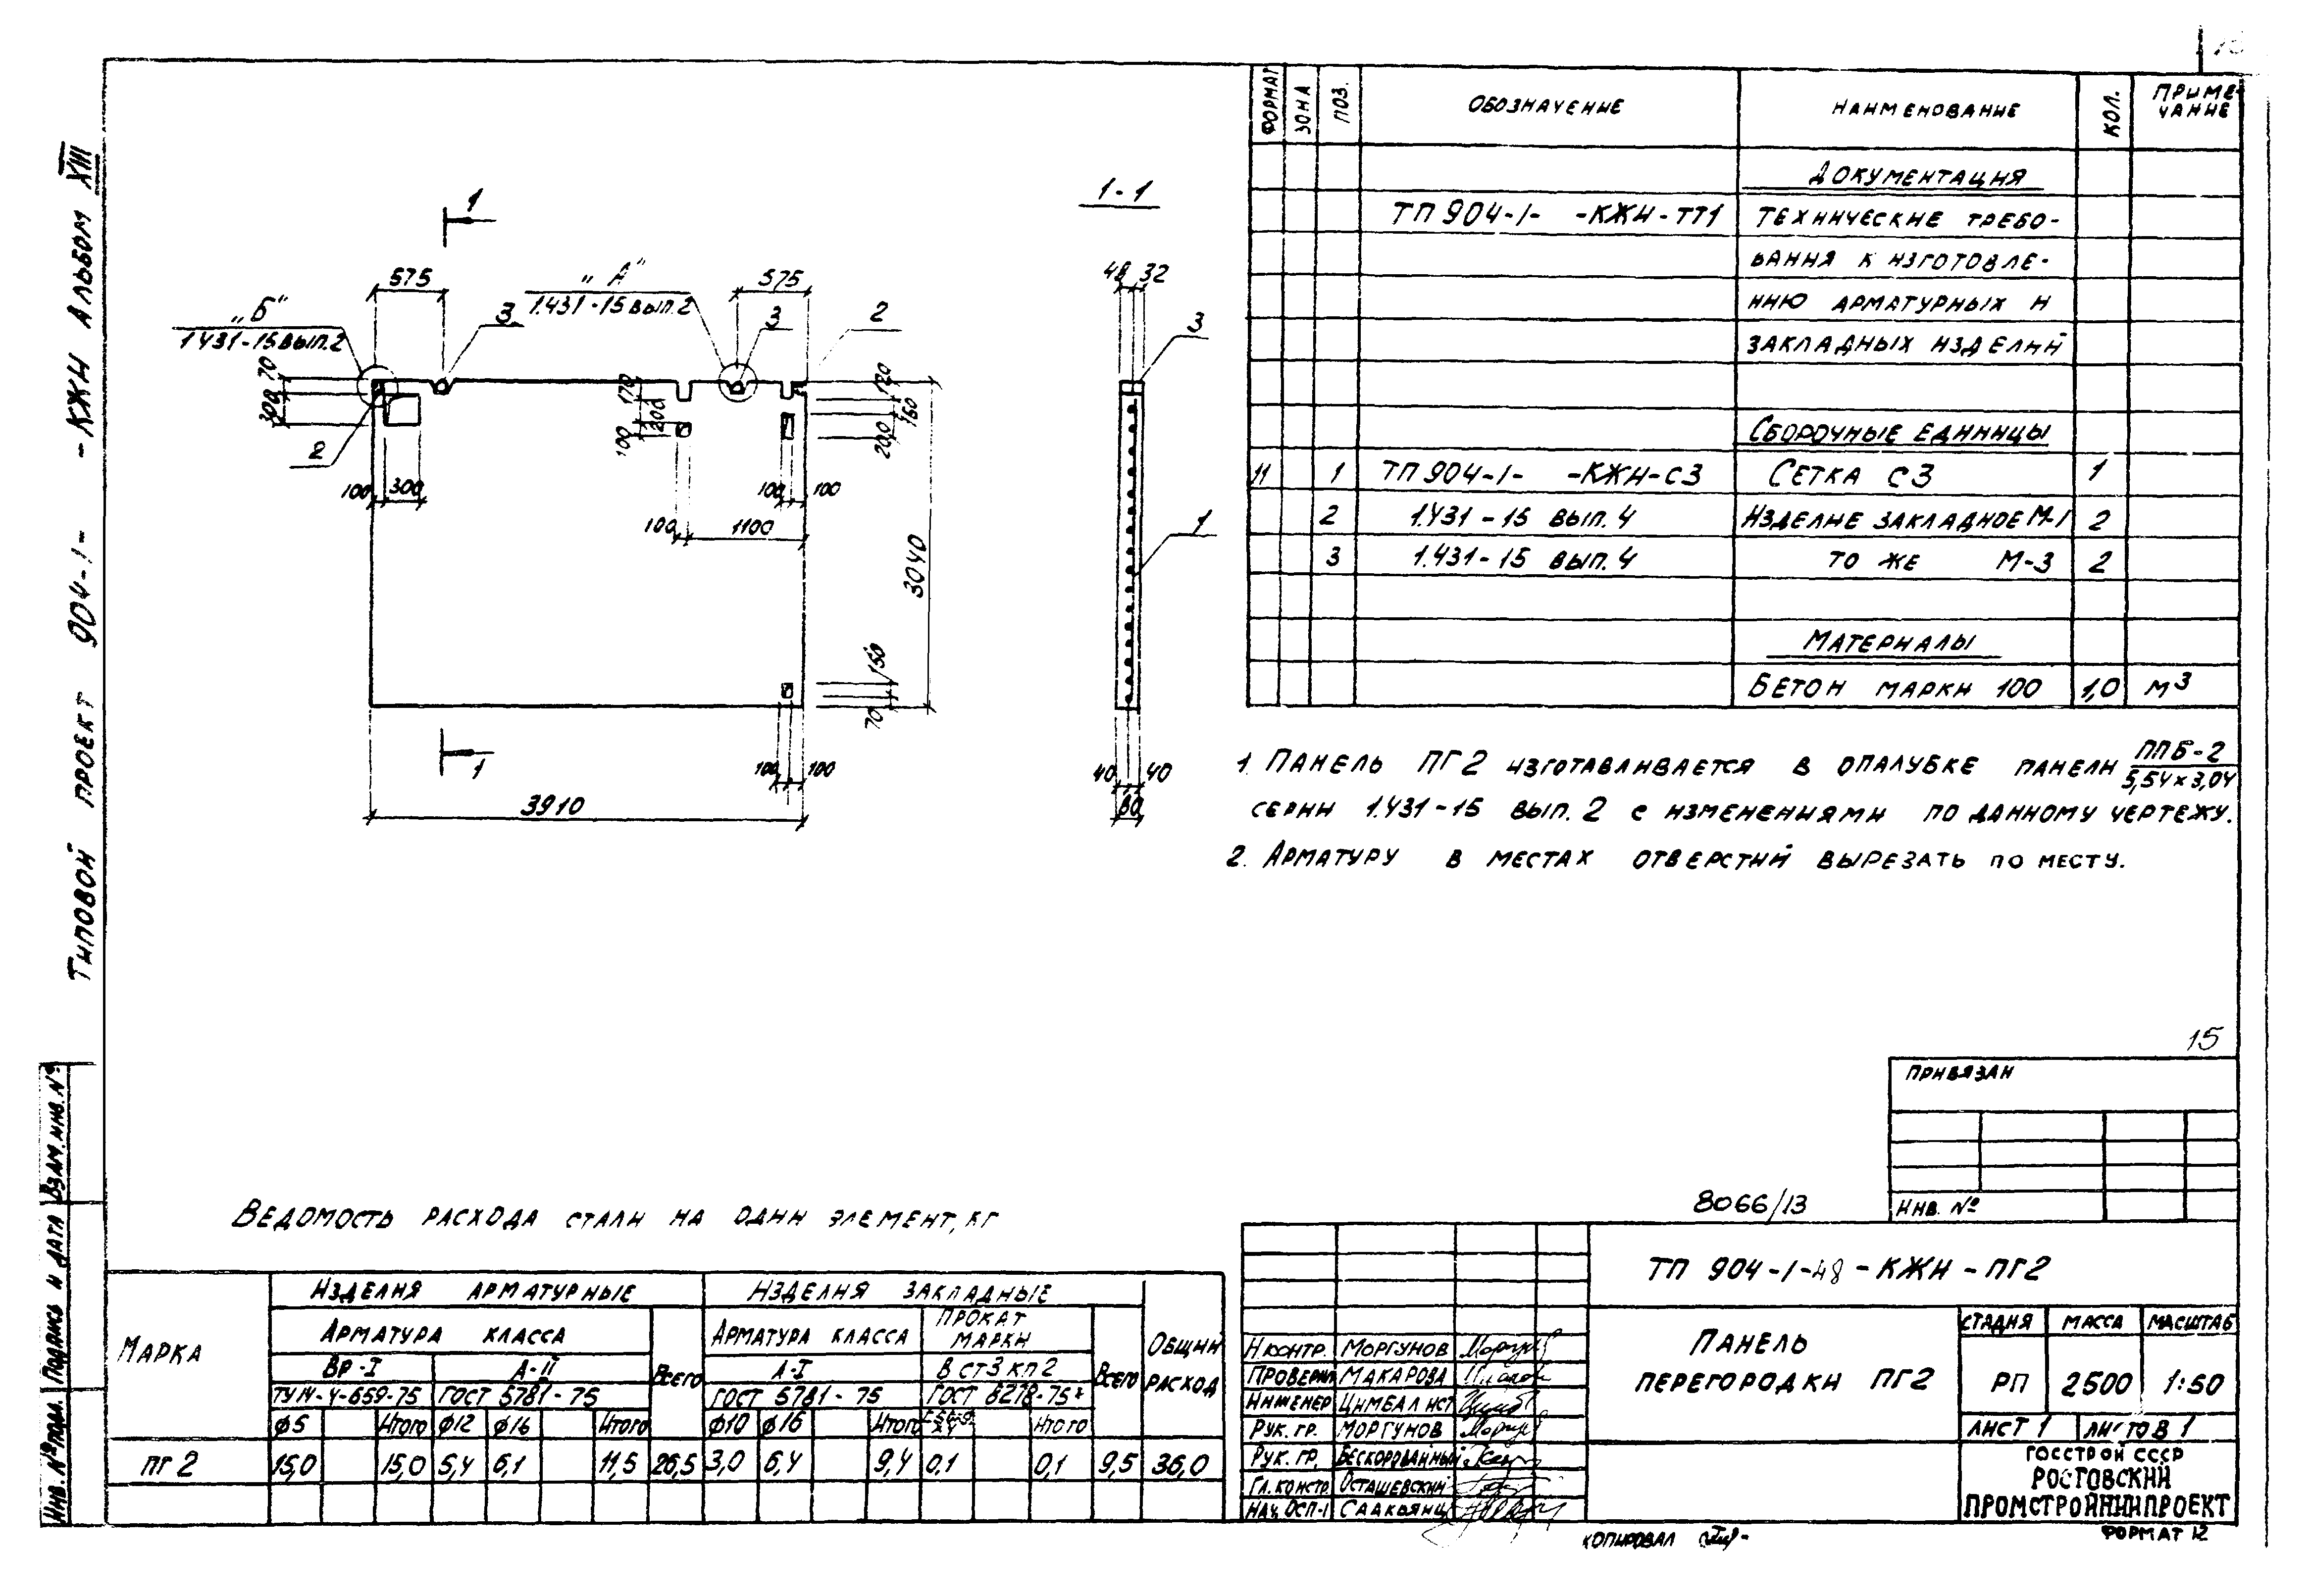 Типовой проект 904-1- -КЖИ Альбом XIII
1
1-1
575
„А“
575
48 32
„Б“
1.431-15 вып.2
3
3
2
3
1.431-15 вып.2
70
300
170
200
100
120
160
200
2
100 300
100 100
100 1100
3040
1
150
70
1
100 100
3910
40 40
80
ФОРМАТ ЗОНА ПОЗ. ОБОЗНАЧЕНИЕ НАИМЕНОВАНИЕ КОЛ. ПРИМЕЧАНИЕ
ДОКУМЕНТАЦИЯ
ТП 904-1- -КЖИ-ТТ1 ТЕХНИЧЕСКИЕ ТРЕБО-
ВАНИЯ К ИЗГОТОВЛЕ-
НИЮ АРМАТУРНЫХ И
ЗАКЛАДНЫХ ИЗДЕЛИЙ
СБОРОЧНЫЕ ЕДИНИЦЫ
11 1 ТП 904-1- -КЖИ-С3 СЕТКА С3 1
2 1.431-15 ВЫП.4 ИЗДЕЛИЕ ЗАКЛАДНОЕ М-1 2
3 1.431-15 ВЫП.4 ТО ЖЕ М-3 2
МАТЕРИАЛЫ
БЕТОН МАРКИ 100 1,0 М3
1. ПАНЕЛЬ ПГ2 ИЗГОТАВЛИВАЕТСЯ В ОПАЛУБКЕ ПАНЕЛИ ППБ-2 / 5,54×3,04
СЕРИИ 1.431-15 ВЫП.2 С ИЗМЕНЕНИЯМИ ПО ДАННОМУ ЧЕРТЕЖУ.
2. АРМАТУРУ В МЕСТАХ ОТВЕРСТИЙ ВЫРЕЗАТЬ ПО МЕСТУ.
15
ПРИВЯЗАН
ИНВ. №
8066/13
ВЕДОМОСТЬ РАСХОДА СТАЛИ НА ОДИН ЭЛЕМЕНТ, КГ
МАРКА ИЗДЕЛИЯ АРМАТУРНЫЕ ИЗДЕЛИЯ ЗАКЛАДНЫЕ ОБЩИЙ РАСХОД
АРМАТУРА КЛАССА ВСЕГО АРМАТУРА КЛАССА ПРОКАТ МАРКИ ВСЕГО
ВР-I А-II А-I В СТ3 КП2
ТУ14-4-659-75 ГОСТ 5781-75 ГОСТ 5781-75 ГОСТ 8278-75*
Ф5 ИТОГО Ф12 Ф16 ИТОГО Ф10 Ф16 ИТОГО ИТОГО
ПГ2 15,0 15,0 5,4 6,1 11,5 26,5 3,0 6,4 9,4 0,1 0,1 9,5 36,0
ТП 904-1-48-КЖИ-ПГ2
Н.КОНТР. МОРГУНОВ
ПРОВЕРИЛ МАКАРОВА
ИНЖЕНЕР ЦИМБАЛИСТ
РУК. ГР. МОРГУНОВ
РУК. ГР. БЕСКОРОВАЙНЫЙ
ГЛ.КОНСТР. ОСТАШЕВСКИЙ
НАЧ.ОСП-1 СААКОЯНЦ
ПАНЕЛЬ
ПЕРЕГОРОДКИ ПГ2
СТАДИЯ МАССА МАСШТАБ
РП 2500 1:50
ЛИСТ 1 ЛИСТОВ 1
ГОССТРОЙ СССР
РОСТОВСКИЙ
ПРОМСТРОЙНИИПРОЕКТ
КОПИРОВАЛ
ФОРМАТ 12
ИНВ. № ПОДЛ. ПОДПИСЬ И ДАТА ВЗАМ.ИНВ.№